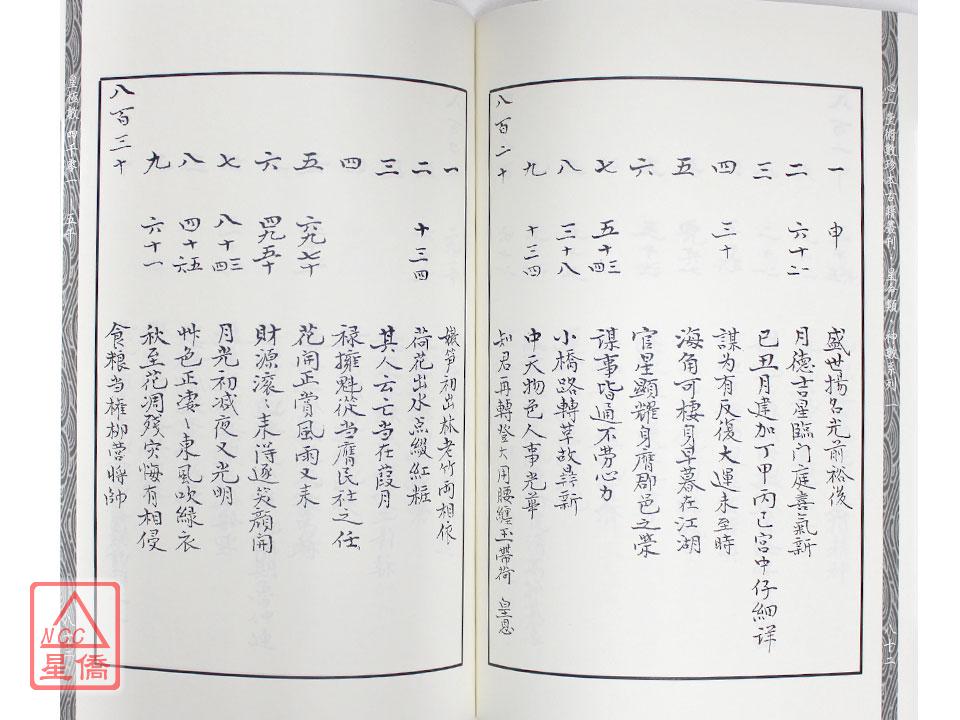 心一堂術數珍本古籍叢刊 星命類 神數系列
一 申 盛世揚名光前裕後
二 六十二 月德吉星臨门庭喜氣新
三 已丑月建加丁甲丙已宮中仔細详
四 三十 謀为有反復大運未至時
五 海角可棲身早暮在江湖
六 官星顯耀身膺郡邑之榮
七 五十四三 謀事皆通不劳心力
八 三十八 小橋路轉草故㝷新
九 十三四 中天物色人事光華
八百二十 知君再轉登大用腰纏玉帶荷 皇恩
八七二
一 嫩筍初出林老竹両相依
二 十三四 荷花出水点綴紅粧
三 其人云亡当在葭月
四 禄擁魁從当膺民社之任
五 六九七十 花開正賞風雨又来
六 四九五十 財源滚〻来得逐笑顔開
七 八十四三 月光初减夜又光明
八 四十六五 艸色正凄〻東風吹緑衣
九 六十一 秋至花凋残灾悔有相侵
八百三十 食粮当權柳营將帥
皇極數
NCC
星僑